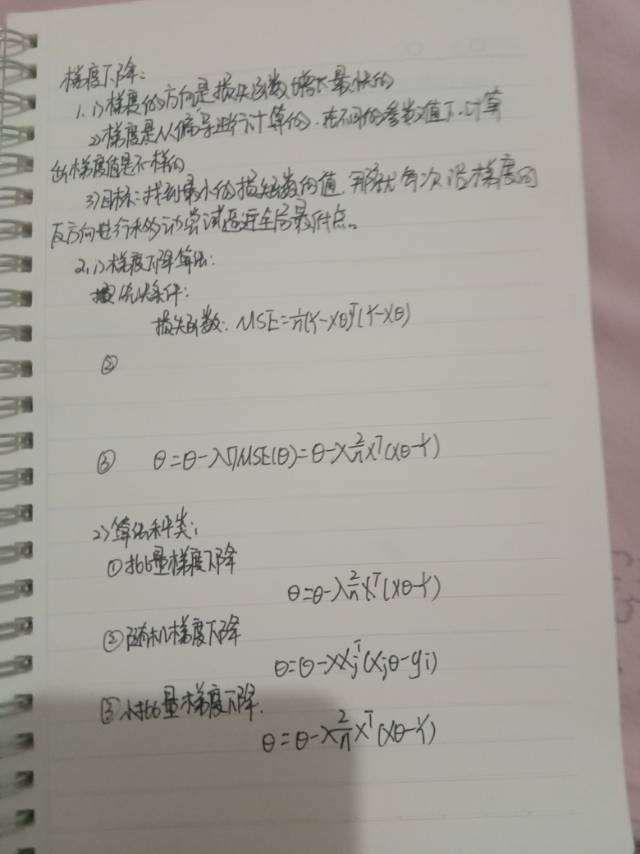 梯度下降:
1.1)梯度的方向是损失函数增长最快的
2)梯度是从偏导进行计算的,在不同的参数值下,计算
出梯度值是不一样的
3)目标:找到最小的损失函数的值,那就每次沿梯度的
反方向进行移动尝试逼近全局最低点。
2.1)梯度下降算法:
优先条件:
损失函数: MSE=1/n(Y-Xθ)ᵀ(Y-Xθ)
②
③ θ=θ-λ∇MSE(θ)=θ-λ2/nXᵀ(Xθ-Y)
2)算法种类:
①批量梯度下降
θ=θ-λ2/nXᵀ(Xθ-Y)
②随机梯度下降
θ=θ-λXⱼᵀ(Xⱼθ-yi)
③小批量梯度下降.
θ=θ-λ2/nXᵀ(Xθ-Y)